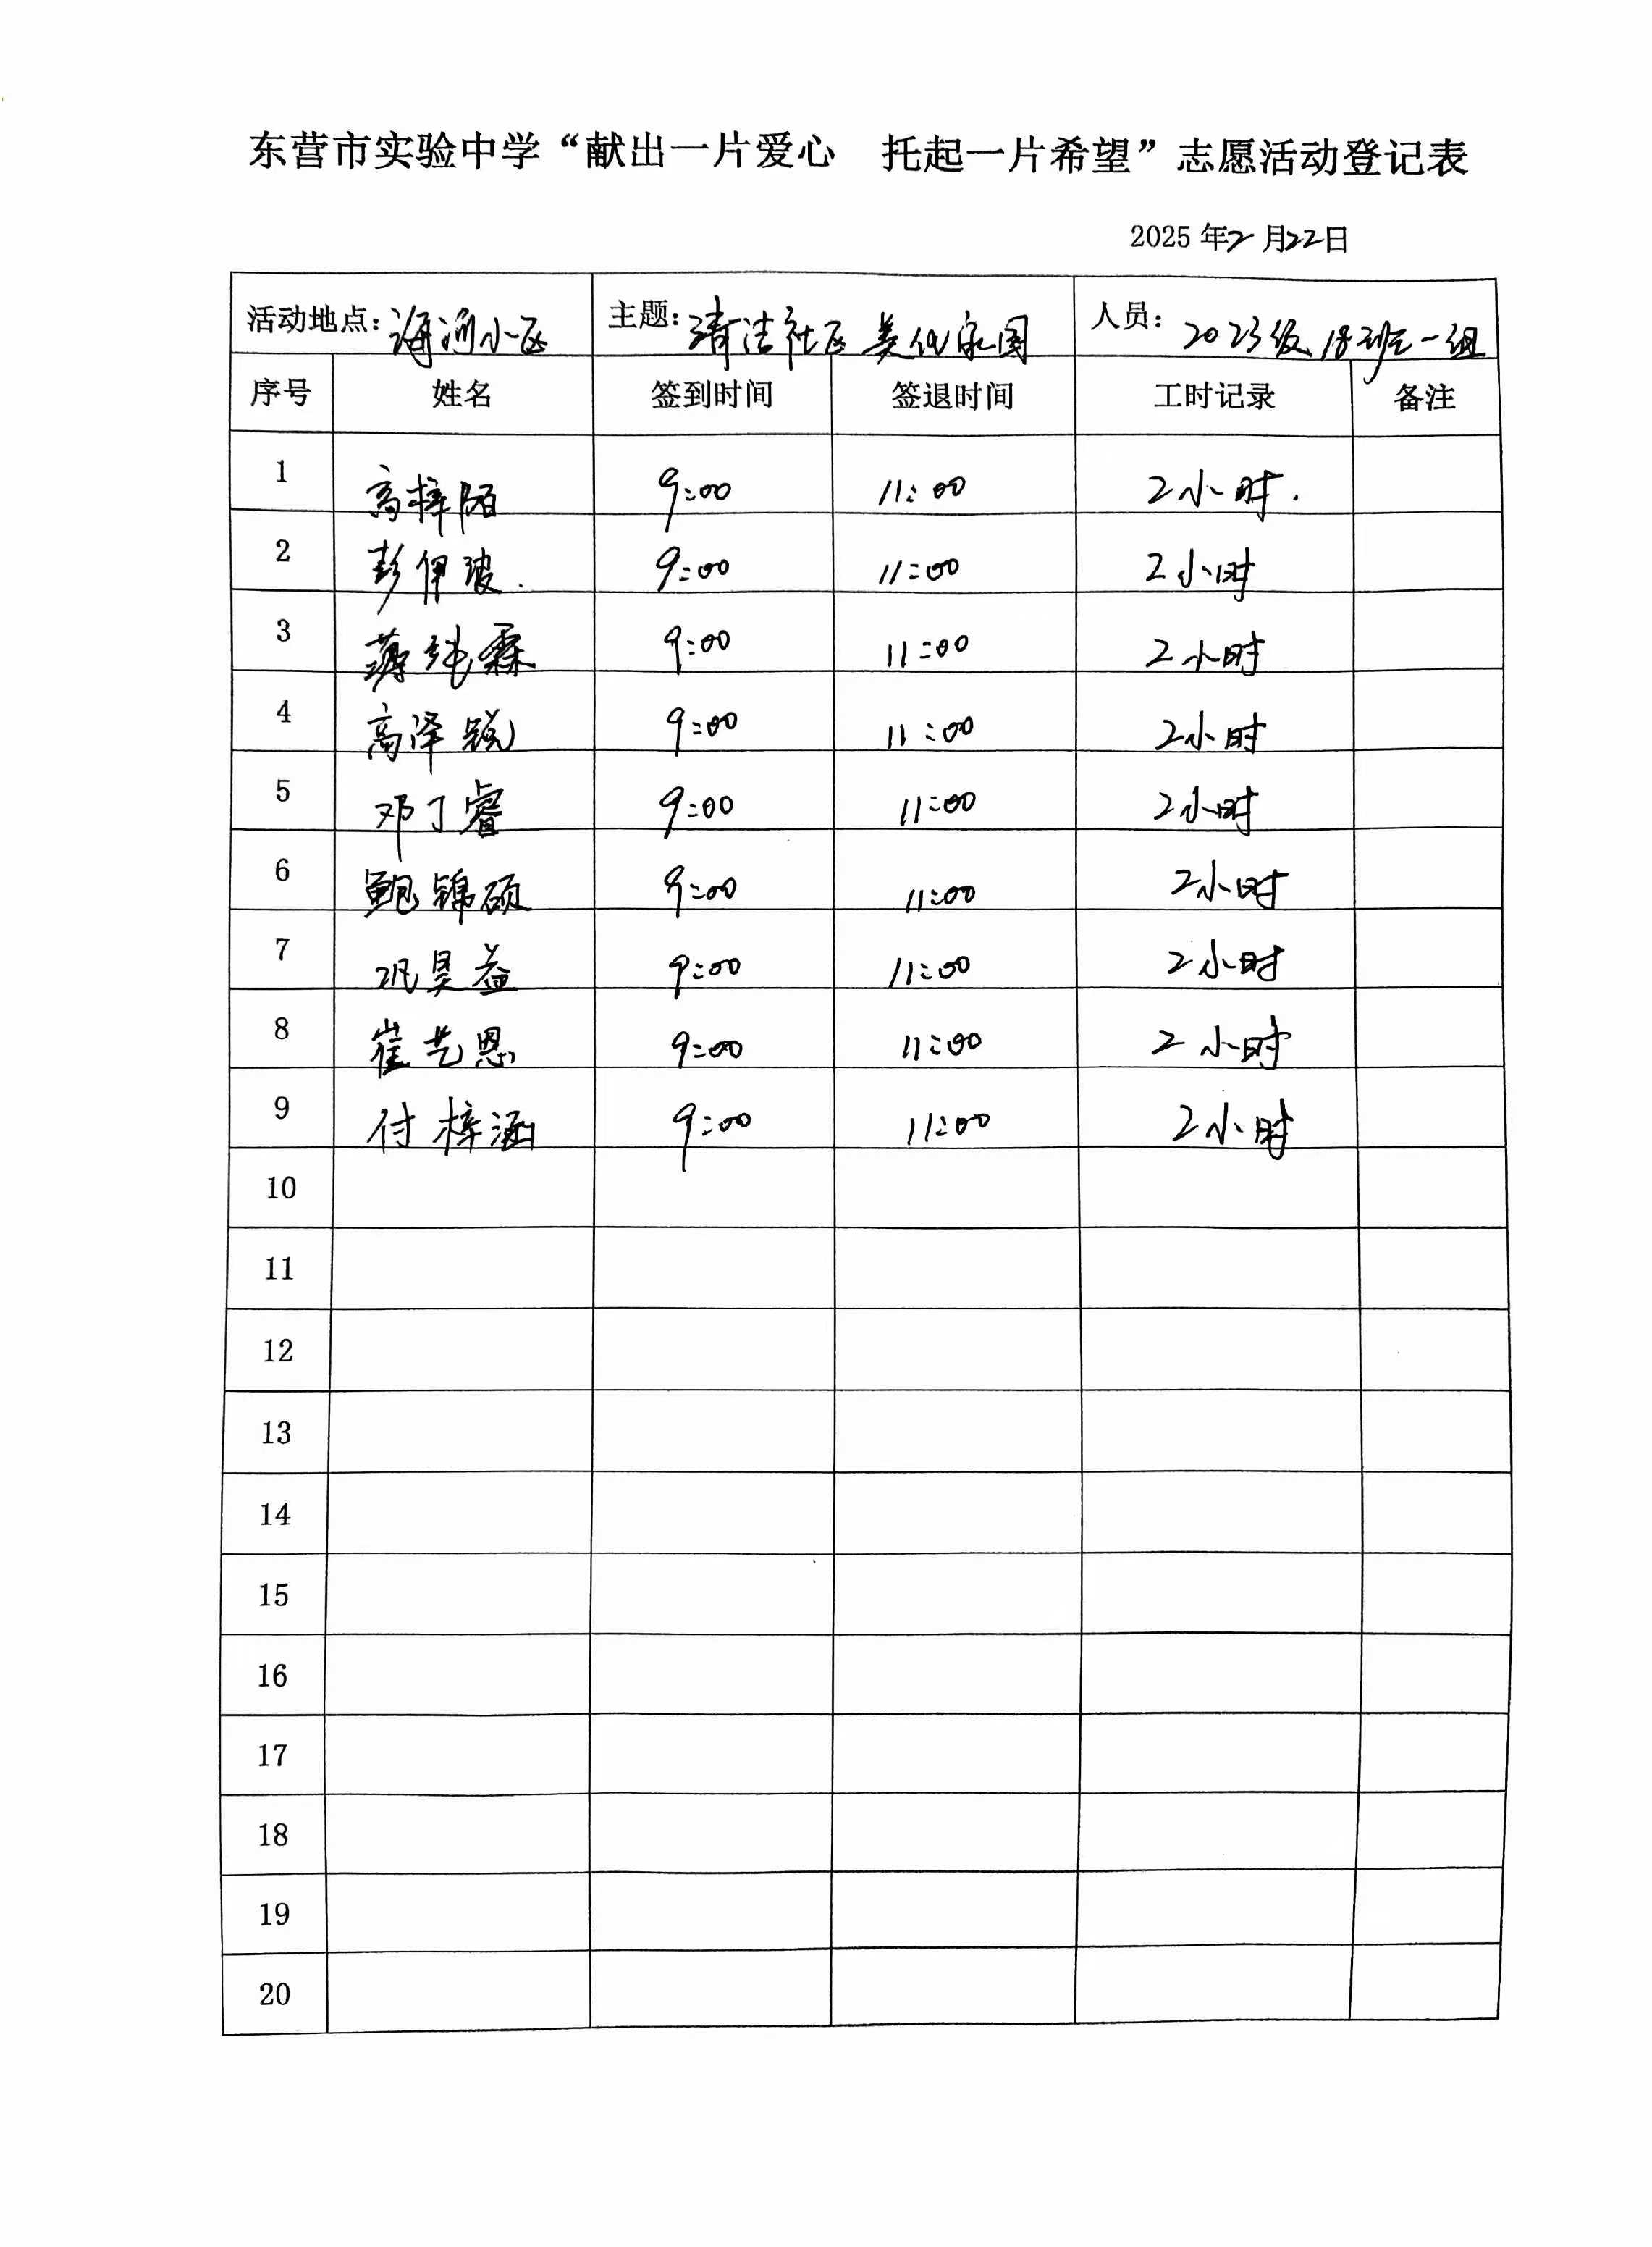 东营市实验中学“献出一片爱心 托起一片希望”志愿活动登记表
2025年2月22日
活动地点：海河小区 主题：清洁社区 美化家园 人员：2023级18班一组
序号 姓名 签到时间 签退时间 工时记录 备注
1 高梓陌 9:00 11:00 2小时.
2 彭伊波. 9:00 11:00 2小时
3 薄纯霖 9:00 11:00 2小时
4 高泽锐 9:00 11:00 2小时
5 邓丁睿 9:00 11:00 2小时
6 鲍锦硕 9:00 11:00 2小时
7 巩昊益 9:00 11:00 2小时
8 崔艺恩 9:00 11:00 2小时
9 付梓涵 9:00 11:00 2小时
10
11
12
13
14
15
16
17
18
19
20